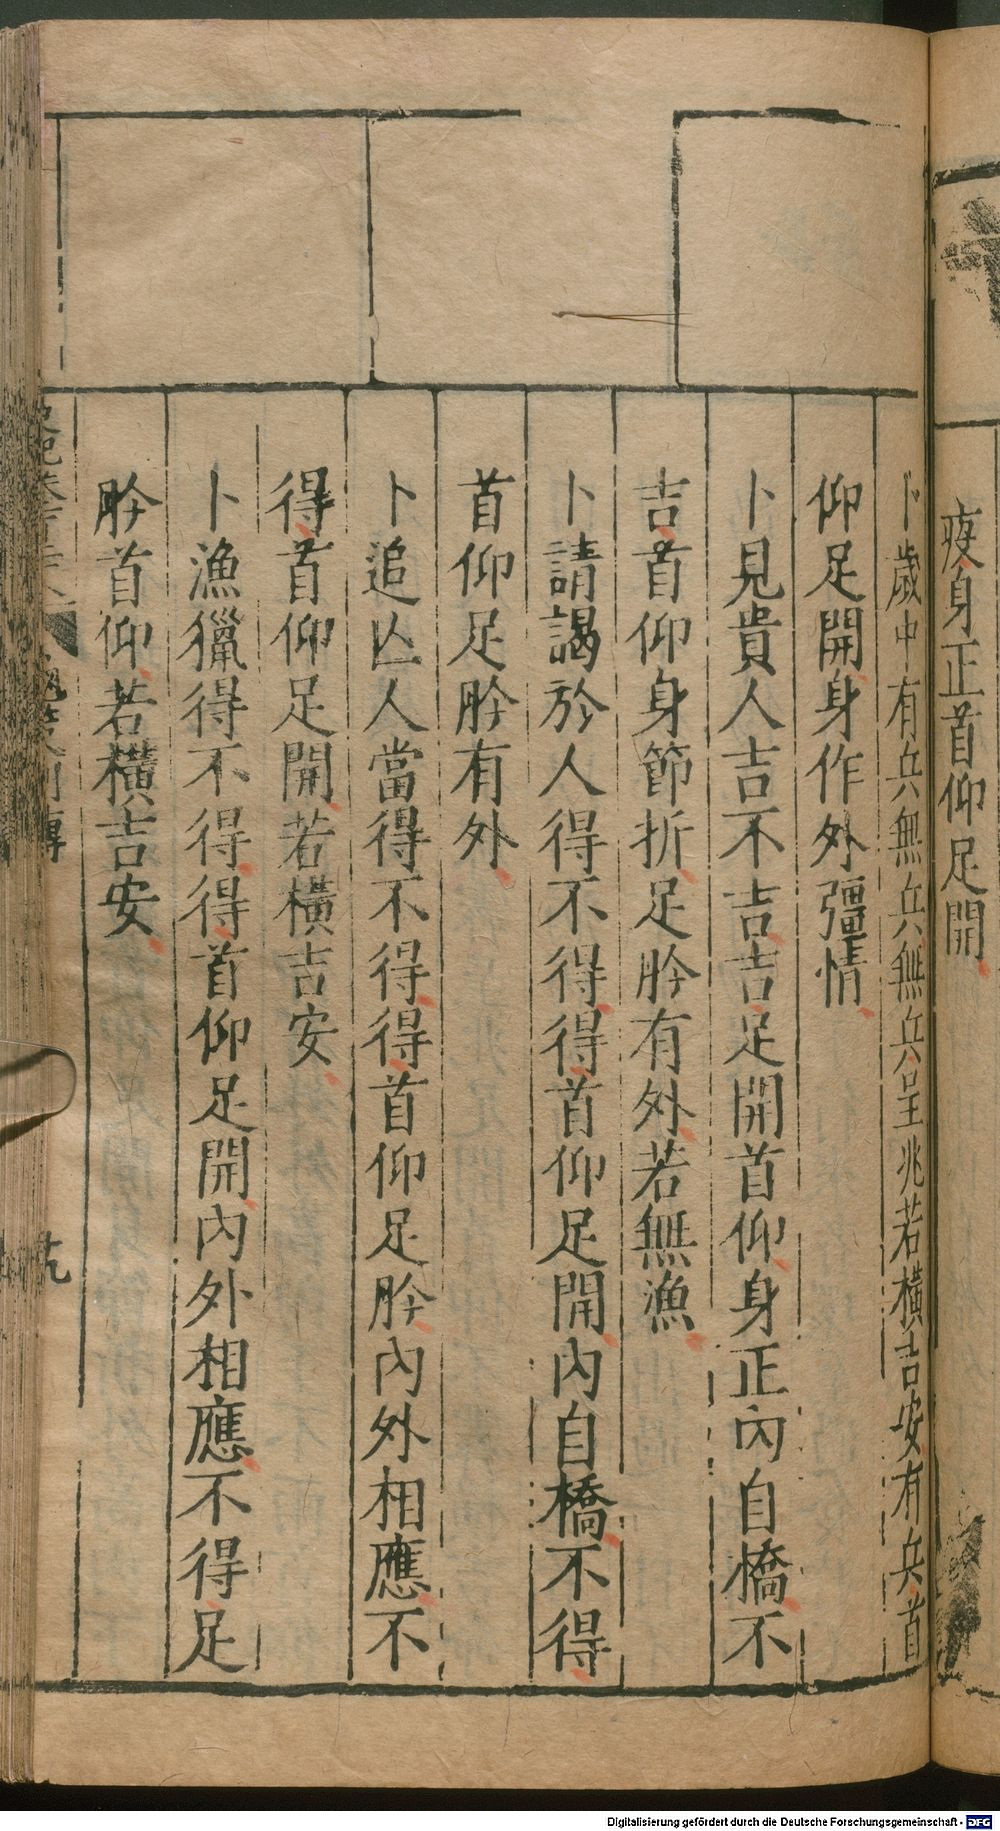 疫身正首仰足開
卜歲中有兵無兵無兵呈兆若橫吉安有兵首
仰足開身作外彊情
卜見貴人吉不吉吉足開首仰身正內自橋不
吉首仰身節折足肣有外若無漁
卜請謁於人得不得得首仰足開內自橋不得
首仰足肣有外
卜追亾人當得不得得首仰足肣內外相應不
得首仰足開若橫吉安
卜漁獵得不得得首仰足開內外相應不得足
肣首仰若橫吉安
Digitalisierung gefördert durch die Deutsche Forschungsgemeinschaft - DFG